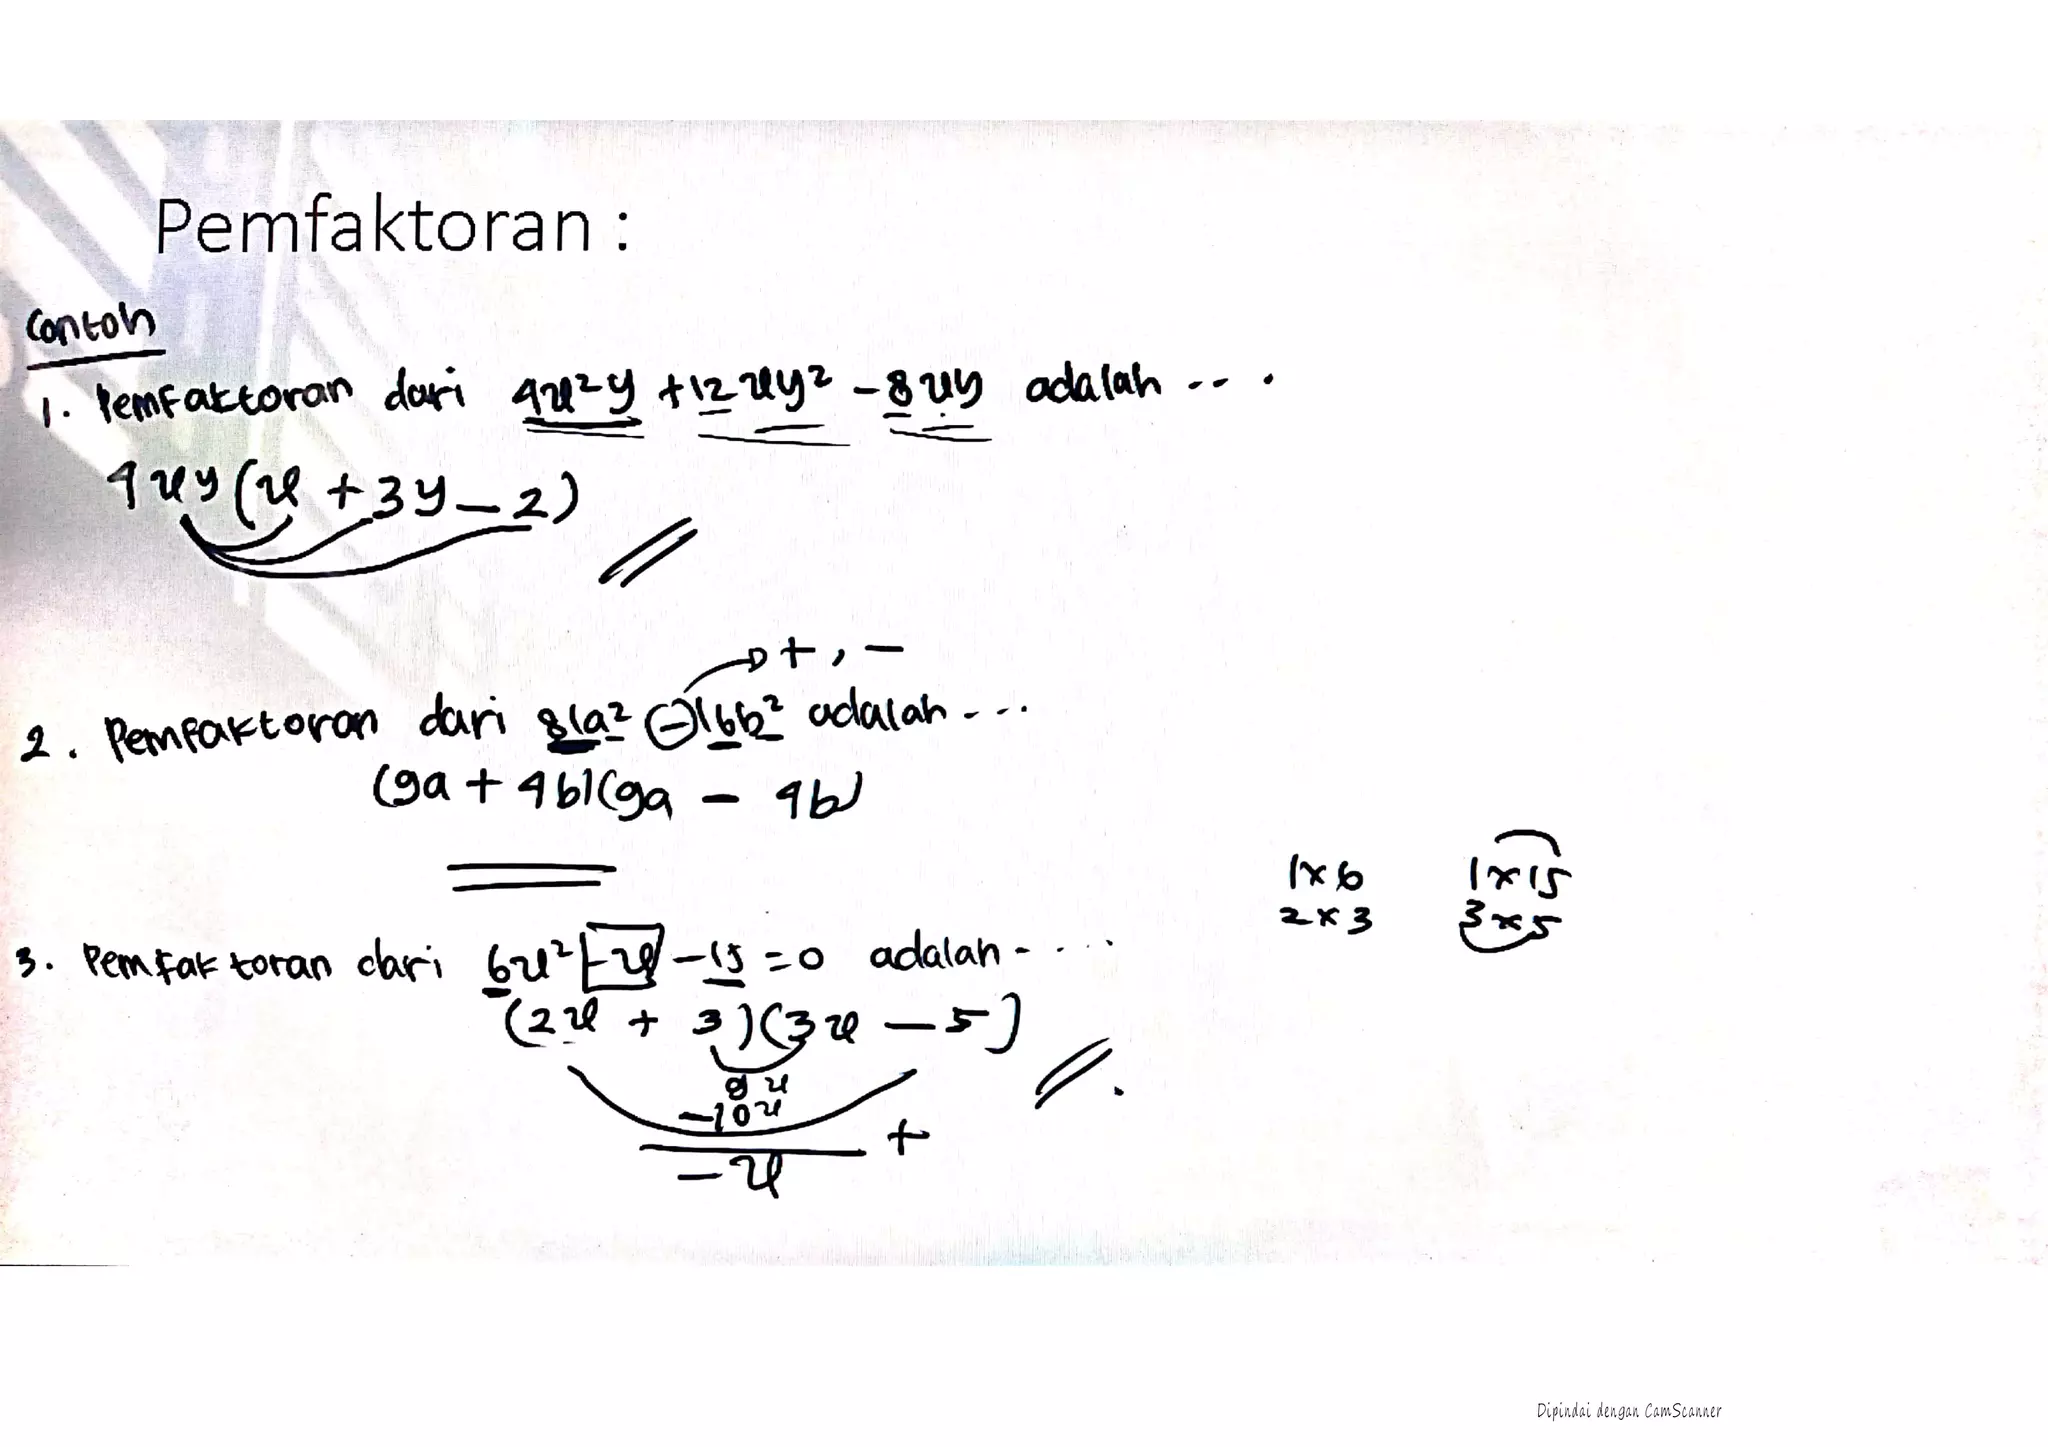 Pemfaktoran :
Contoh
1. Pemfaktoran dari 4x²y + 12xy² - 8xy adalah ...
4xy(x + 3y - 2)
+, -
2. Pemfaktoran dari 81a² - 16b² adalah ...
(9a + 4b)(9a - 4b)
1x6 1x15
2x3 3x5
3. Pemfaktoran dari 6x² - x - 15 = 0 adalah ....
(2x + 3)(3x - 5)
9x
-10x
+
-x
Dipindai dengan CamScanner